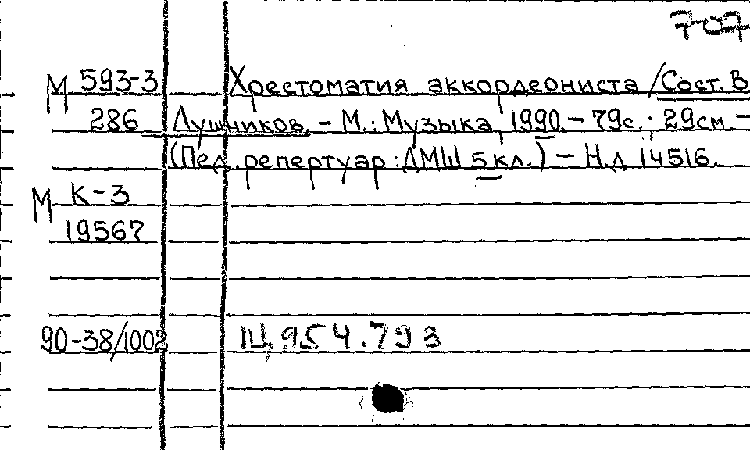 707
М 593-3 Хрестоматия аккордеониста / Сост. В
286 Лушников. - М.: Музыка, 1990. - 79с.; 29см. -
(Пед. репертуар: ДМШ 5 кл.) - Н.д 14516.
М К-3
19567
90-38/1002 Щ954.793